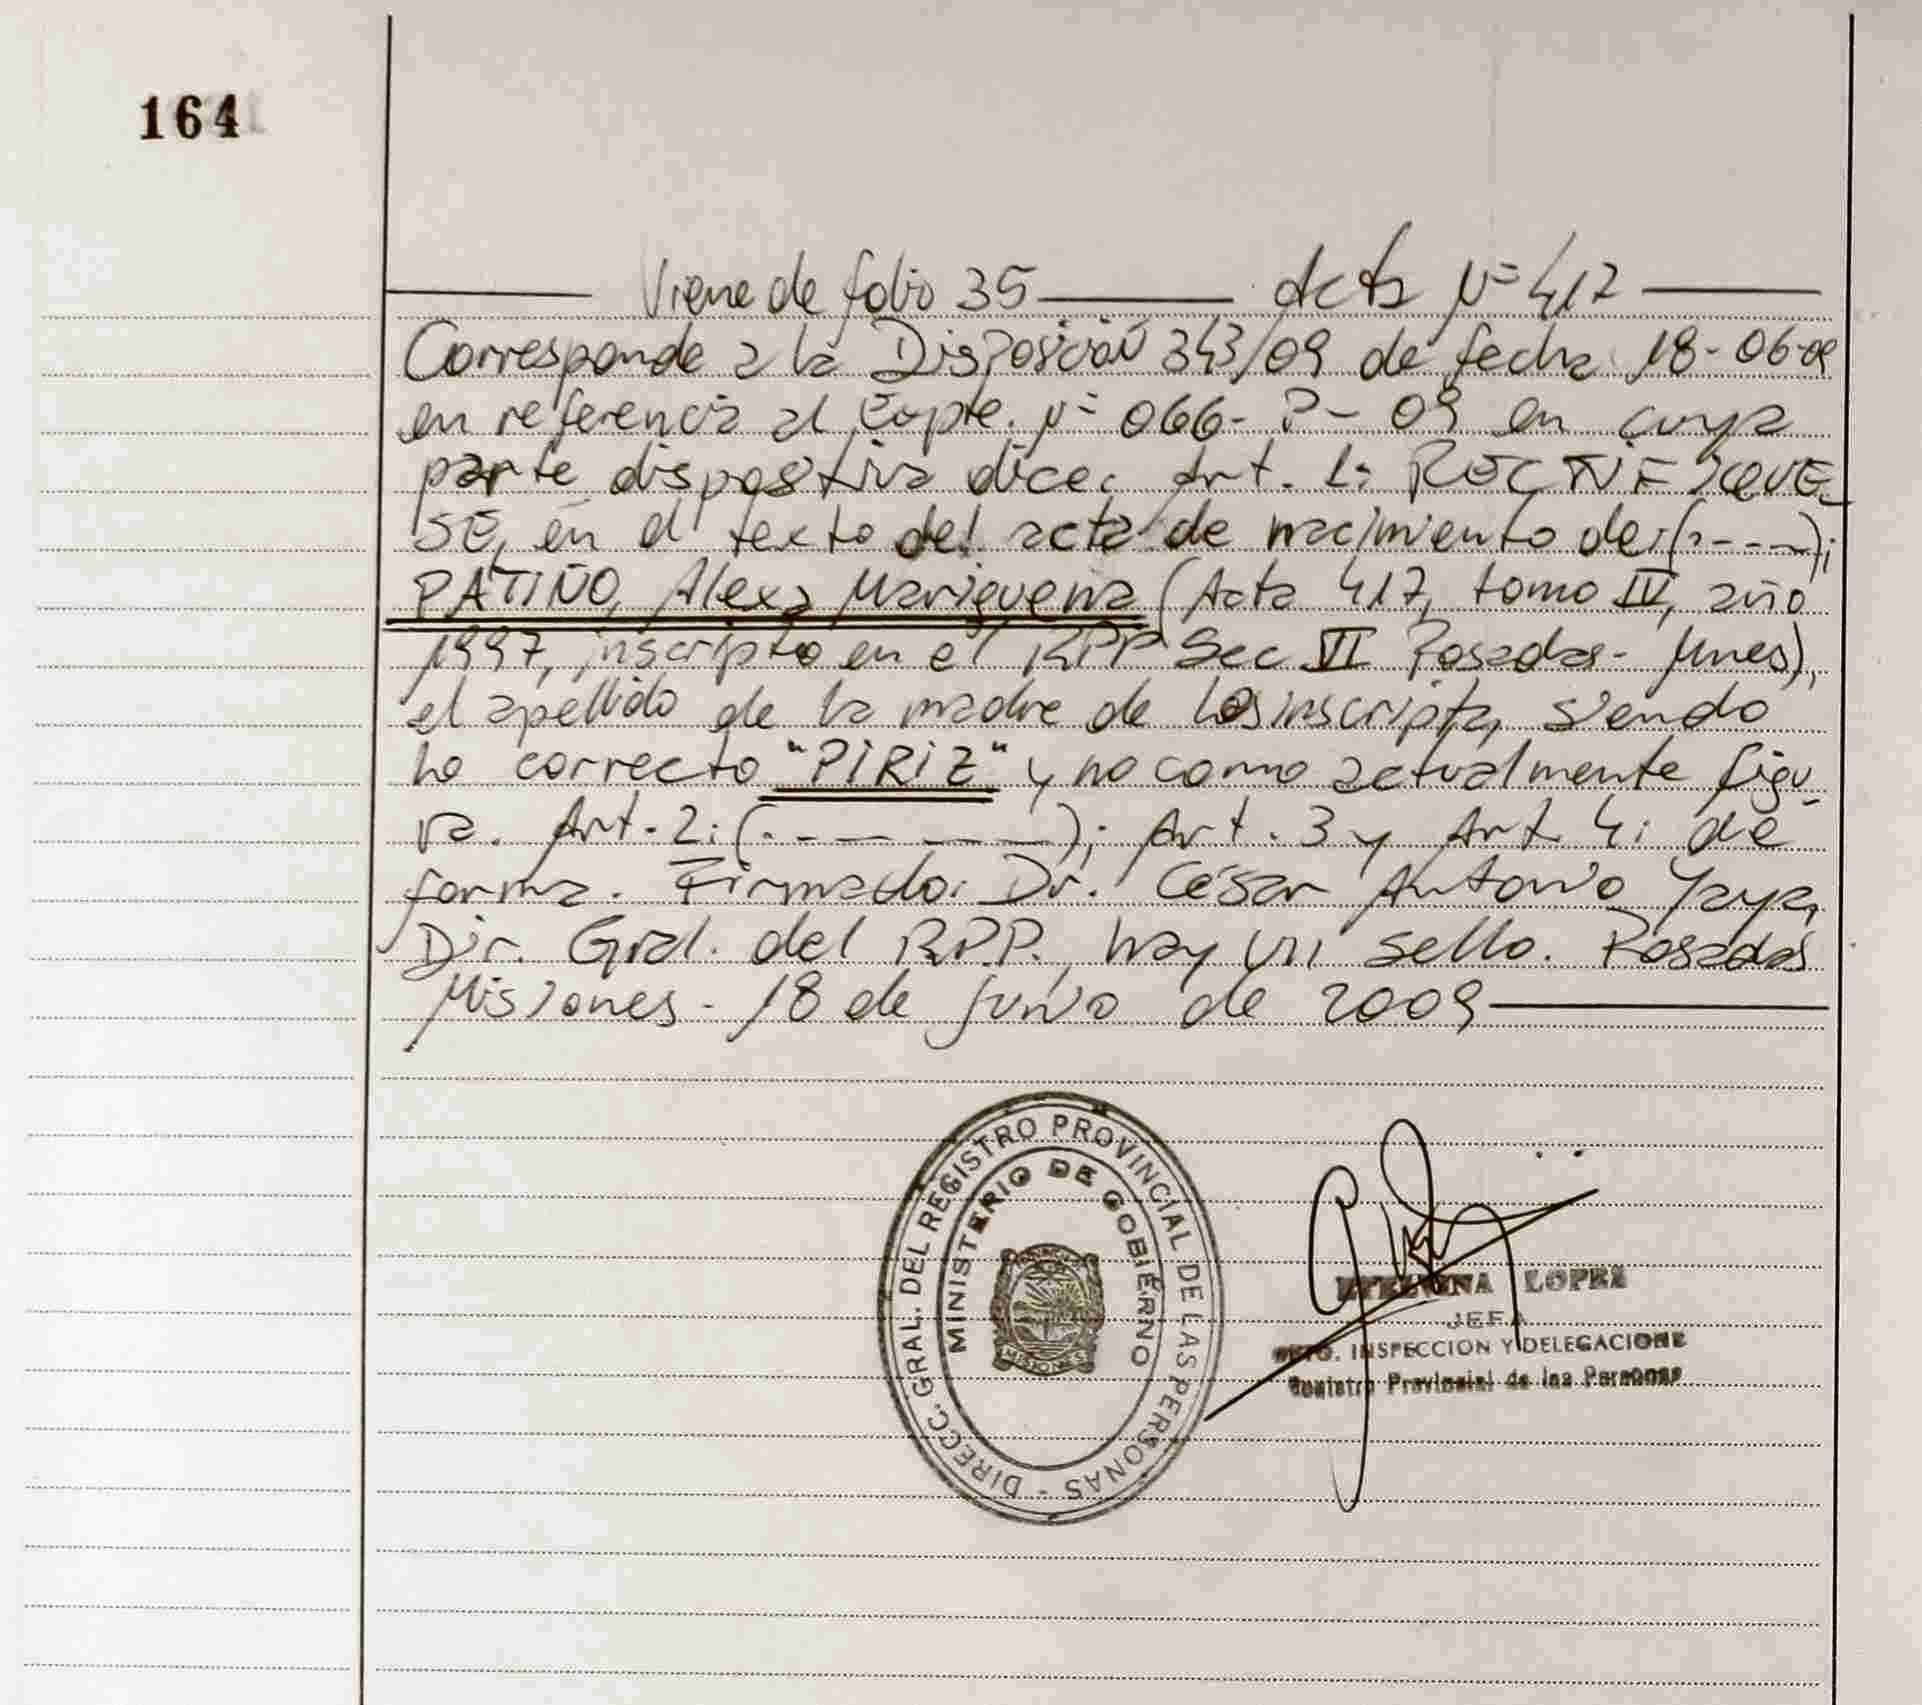 164
Viene de folio 35 — Acta Nº 417 —
Corresponde a la Disposición 343/09 de fecha 18-06-09
en referencia al Expte. Nº 066-P-09 en cuya
parte dispositiva dice: Art. 1: RECTIFIQUE-
SE, en el texto del acta de nacimiento de: (----);
PATIÑO, Alexa (Acta 417, tomo IV, año
1997, inscripto en el RPP Sec VI Posadas- Mnes),
el apellido de la madre de la inscripta, siendo
lo correcto "PIRIZ" y no como actualmente figu-
ra. Art. 2: (- - - - -); Art. 3 y Art. 4: de
forma. Firmado: Dr. César Antonio Yaya,
Dir. Gral. del R.P.P., hay un sello. Posadas
Misiones - 18 de junio de 2009 —
DIRECC. GRAL. DEL REGISTRO PROVINCIAL DE LAS PERSONAS -
MINISTERIO DE GOBIERNO
MISIONES
LOPEZ
JEFA
DPTO. INSPECCION Y DELEGACIONE
Registro Provincial de las Personas